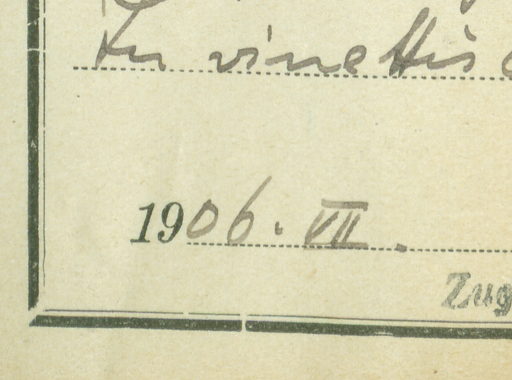 In vinettis
1906. VII.
Zug